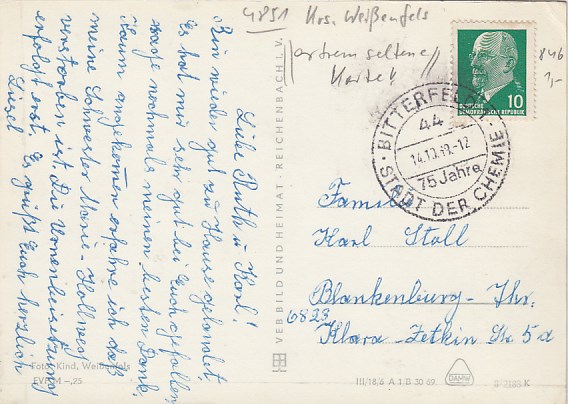 4851 Krs. Weißenfels
(extrem seltene
Karte!
846
1,-
DEUTSCHE
DEMOKRATISCHE REPUBLIK
10
BITTERFELD
44
14.10.69.-12
75 Jahre
STADT DER CHEMIE
Liebe Ruth u. Karl!
Bin wieder gut zu Hause gelandet.
Es hat mir sehr gut bei Euch gefallen,
sage nochmals meinen besten Dank.
Kaum angekommen erfahre ich daß
meine Schwester Marie-
verstorben ist. Die Urnenbeisetzung
erfolgt erst. Es grüßt Euch herzlich
Liesel
VEB BILD UND HEIMAT · REICHENBACH I. V.
Familie
Karl Stoll
Blankenburg - Thr.
6823
Klara-Zetkin Str. 5a
Foto: Kind, Weißenfels
EVP M -,25
III/18/6 A 1 B 30 69
DAMW
K